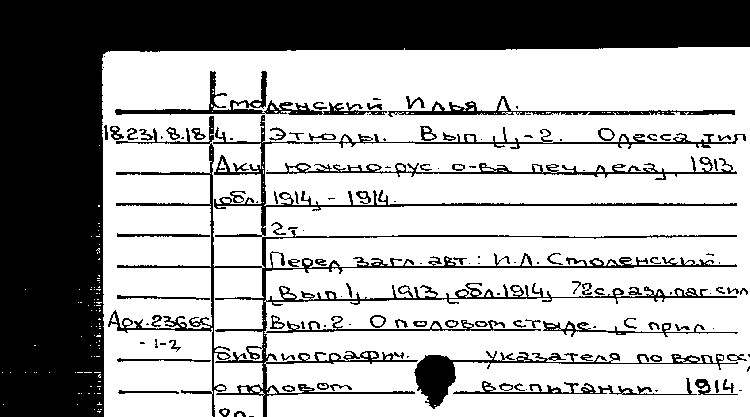 Смоленский, Илья Л.
18.231.8.184. Этюды. Вып. [1]-2. Одесса, тип
Акц южно-рус о-ва печ. дела, 1913
[обл. 1914] - 1914.
2т.
Перед загл. авт.: И.Л. Смоленский.
[Вып.1]. 1913 [обл.1914] 72с.разд.паг. сил
Арх.23665 Вып.2. О половом стыде. [С прил.
-1-2
библиографич. указателя по вопросу
о половом воспитании. 1914.